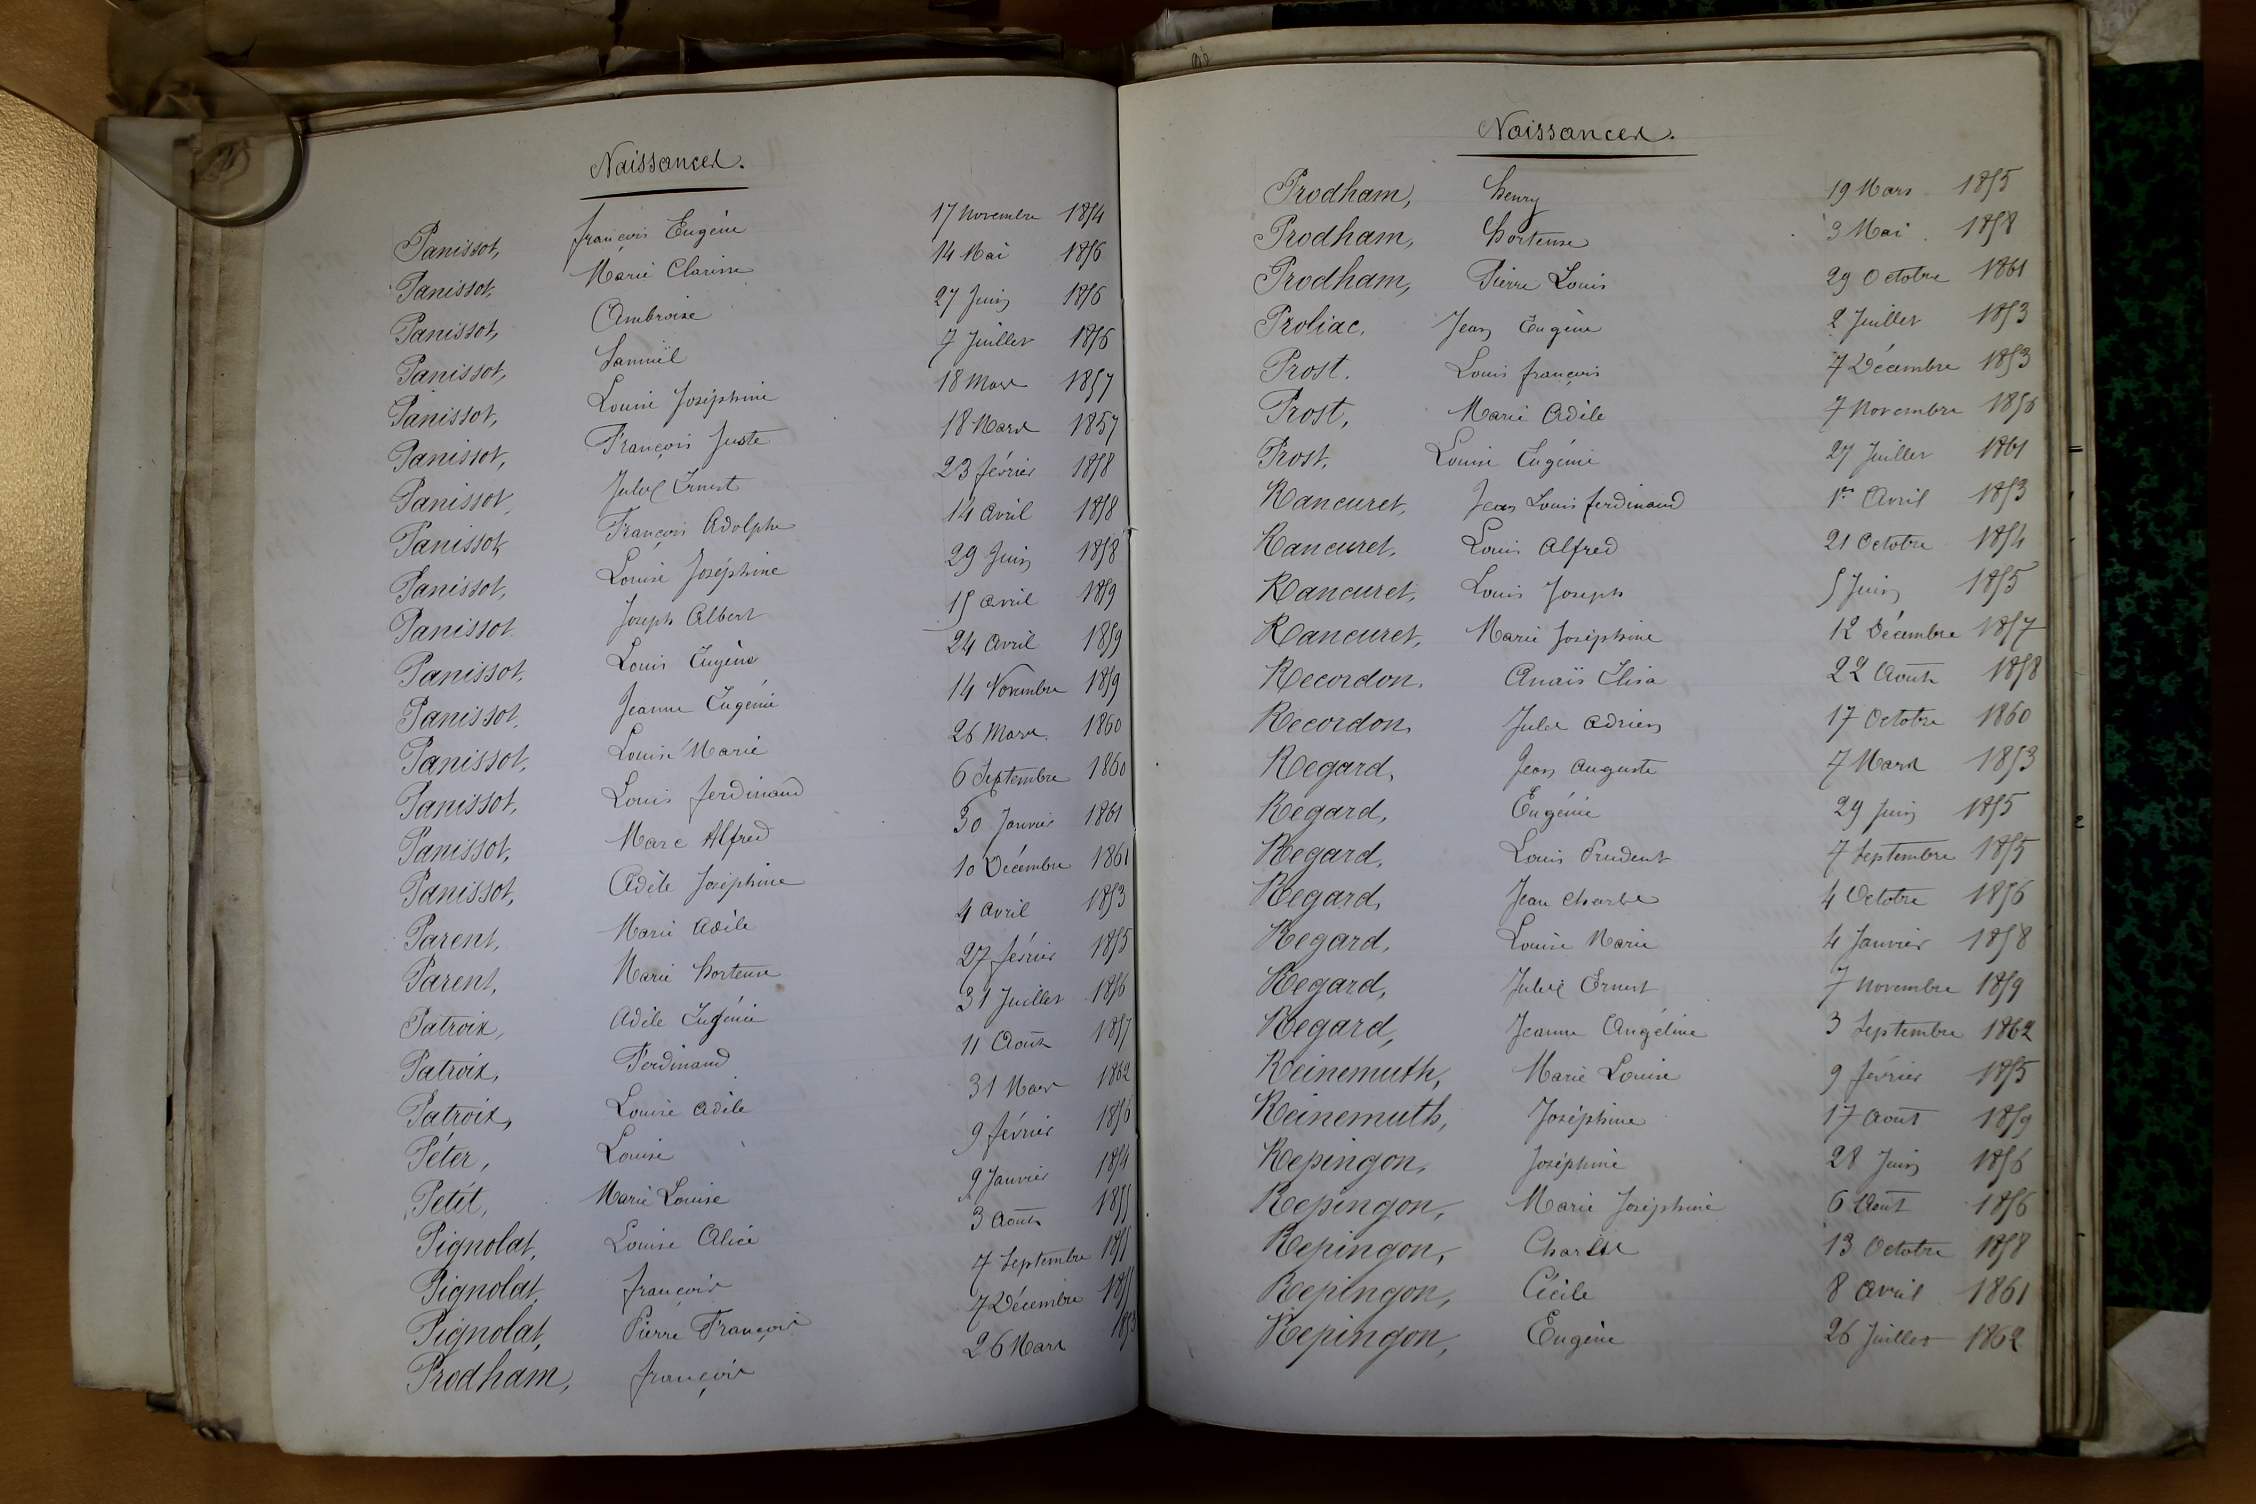 Naissances.
Panissot, françois Eugène 17 Novembre 1854
Panissot, Marie Clarisse 14 Mai 1856
Panissot, Ambroise 27 Juin 1856
Panissot, Samuël 7 Juillet 1856
Panissot, Louise Joséphine 18 Mars 1857
Panissot, François Juste 18 Mars 1857
Panissot, Jules Ernest 23 février 1858
Panissot, François Adolphe 14 avril 1858
Panissot, Louise Joséphine 29 Juin 1858
Panissot Joseph Albert 15 avril 1859
Panissot, Louis Eugène 24 avril 1859
Panissot, Jeanne Eugénie 14 Novembre 1859
Panissot, Louise Marie 26 Mars 1860
Panissot, Louis ferdinand 6 Septembre 1860
Panissot, Marc Alfred 30 Janvier 1861
Panissot, Adèle Joséphine 10 Décembre 1861
Parent, Marie Adèle 4 avril 1853
Parent, Marie hortense 27 février 1855
Patroix, Adèle Eugénie 31 Juillet 1856
Patroix, Ferdinand 11 Août 1857
Patroix, Louise adèle 31 Mars 1862
Péter, Louise 9 février 1856
Petit, Marie Louise 9 Janvier 1854
Pignolat, Louise Alice 3 août 1855
Pignolat, françois 7 Septembre 1855
Pignolat, Pierre François 7 Décembre 1855
Prodham, françois 26 Mars 1853
Naissances.
Prodham, henry 19 Mars 1855
Prodham, hortense 3 Mai 1858
Prodham, Pierre Louis 29 Octobre 1861
Proliac, Jean Eugène 2 Juillet 1853
Prost. Louis françois 7 Décembre 1853
Prost, Marie Adèle 7 Novembre 1856
Prost, Louise Eugénie 27 Juillet 1861
Rancuret, Jean Louis ferdinand 1er Avril 1853
Rancuret, Louis Alfred 21 Octobre 1854
Rancuret, Louis Joseph 5 Juin 1855
Rancuret, Marie Joséphine 12 Décembre 1857
Recordon, Anaïs Elisa 22 Août 1858
Recordon, Jules Adrien 17 Octobre 1860
Regard, Jean Auguste 7 Mars 1853
Regard, Eugénie 29 Juin 1855
Regard, Louis Prudent 7 Septembre 1855
Regard, Jean Charles 4 Octobre 1856
Regard, Louise Marie 4 Janvier 1858
Regard, Jules Ernest 7 Novembre 1859
Regard, Jeanne Angéline 3 Septembre 1862
Reinemuth, Marie Louise 9 février 1855
Reinemuth, Joséphine 17 août 1859
Repingon, Joséphine 28 Juin 1856
Repingon, Marie Joséphine 6 Août 1856
Repingon, Charles 13 Octobre 1858
Repingon, Cécile 8 avril 1861
Repingon, Eugène 26 Juillet 1862